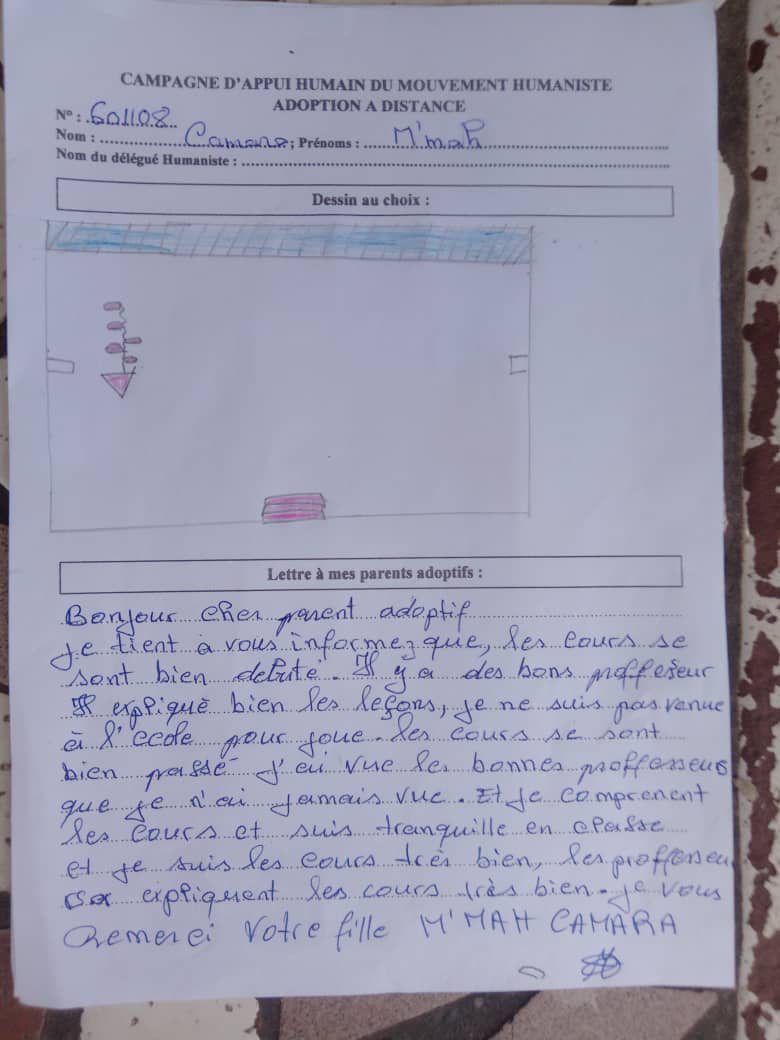 CAMPAGNE D'APPUI HUMAIN DU MOUVEMENT HUMANISTE
ADOPTION A DISTANCE
N° : 601108
Nom : Camara ; Prénoms : M'mah
Nom du délégué Humaniste :
Dessin au choix :
Lettre à mes parents adoptifs :
Bonjour cher parent adoptif
je tient à vous informez que, les cours se
sont bien debuté. Il y a des bons proffeseur
Il expliquè bien les leçons, je ne suis pas venue
à l'ecole pour joue. les cours se sont
bien passé j'ai vue les bonnes proffesseus
que je n'ai jamais vue. Et je comprenent
les cours et suis tranquille en classe
et je suis les cours trés bien, les proffesseu
expliquent les cours très bien. je vous
Remerci Votre fille M'MAH CAMARA